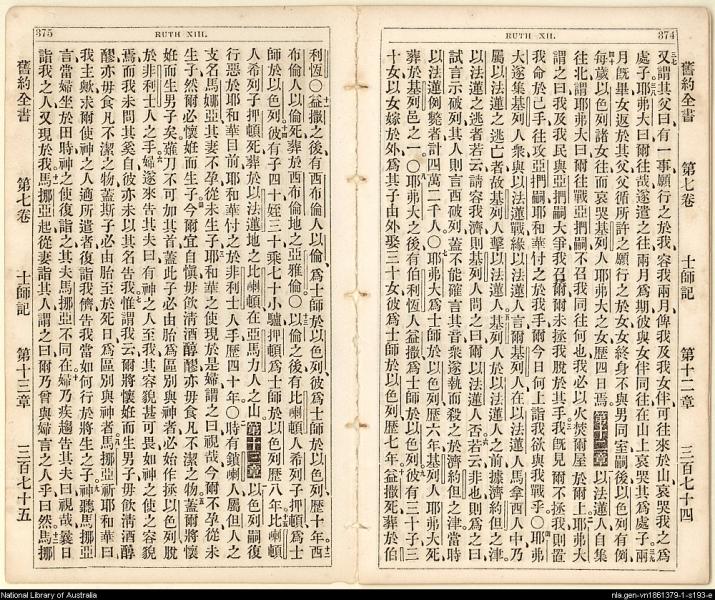 RUTH XII. 374
舊約全書 第七卷 士師記 第十二章 三百七十四
又謂其父曰有一事願行之於我容我兩月俾我及我女伴可往來於山哀哭我之爲
處子耶弗大曰爾往哉遂遣之往兩月爲期彼與女伴同往在山上哀哭其爲處子兩
月旣畢女返於其父父循所許之願行之於女女終身不與男同室嗣後以色列有例
每歲以色列諸女往而哀哭基列人耶弗大之女歷四日焉第十二章以法蓮人自集
往北謂耶弗大曰爾往戰亞捫嗣不召我同往何也我必以火焚爾屋於爾上耶弗大
謂之曰我及我民與亞捫嗣大爭我召爾爾未拯我脫於其手我旣見爾不拯我則置
我命於己手往攻亞捫嗣耶和華付之於我手爾今日何上詣我欲與我戰乎〇耶弗
大遂集基列人衆與以法蓮戰緣以法蓮人言爾基列人在以法蓮人馬拿西人中乃
屬以法蓮之逃亡者故基列人擊以法蓮人基列人於以法蓮人之前據濟約但之津
以法蓮之逃者若云請容我濟則基列人問之曰爾以法蓮人否若云非也則爲之曰
試言示破列其人則言西破列蓋不能確言其音衆遂執而殺之於濟約但之津當時
以法蓮例斃者計四萬二千人〇耶弗大爲士師於以色列歷六年基列人耶弗大死
葬於基列邑之一〇耶弗大之後有伯利恆人益撒爲士師於以色列彼有三十子三
十女以女嫁於外爲其子由外娶三十女彼爲士師於以色列歷七年益撒死葬於伯
375 RUTH XIII.
利恆〇益撒之後有西布倫人以倫爲士師於以色列彼爲士師於以色列歷十年西
布倫人以倫死葬於西布倫地之亞雅倫〇以倫之後有比喇頓人希列子押頓爲士
師於以色列彼有子四十姪三十乘七十小驢押頓爲士師於以色列歷八年比喇頓
人希列子押頓死葬於以法蓮地之比喇頓在亞馬力人之山第十三章以色列嗣復
行惡於耶和華目前耶和華付之於非利士人手歷四十年〇時有鎖喇人屬但人之
支名馬挪亞其妻不孕從未生子耶和華之使現於是婦謂之曰視哉今爾不孕從未
生子然爾必懷姙而生子今爾宜自愼毋飲清酒醇醪亦毋食凡不潔之物蓋爾將懷
姙而生男子矣薙刀不可加其首蓋此子必由胎爲區別與神者必始作拯以色列脫
於非利士人之手婦遂來告其夫曰有神之人至我其容貌甚可畏如神之使之容貌
焉而我未問其奚自彼亦未以其名告我惟謂我云爾將懷姙而生男子毋飲清酒醇
醪亦毋食凡不潔之物蓋斯子必由胎至於死日爲區別與神者馬挪亞祈耶和華曰
我主歟求爾使神之人適所遣者復詣我儕告我當如何行於將生之子神聽馬挪亞
言當婦坐於田時神之使復詣之其夫馬挪亞不同在婦乃疾趨告其夫曰視哉曩日
詣我之人又現於我馬挪亞起從妻詣其人謂之曰爾乃曾與婦言之人乎曰然馬挪
舊約全書 第七卷 士師記 第十三章 三百七十五
National Library of Australia
nla.gen-vn1861379-1-s193-e